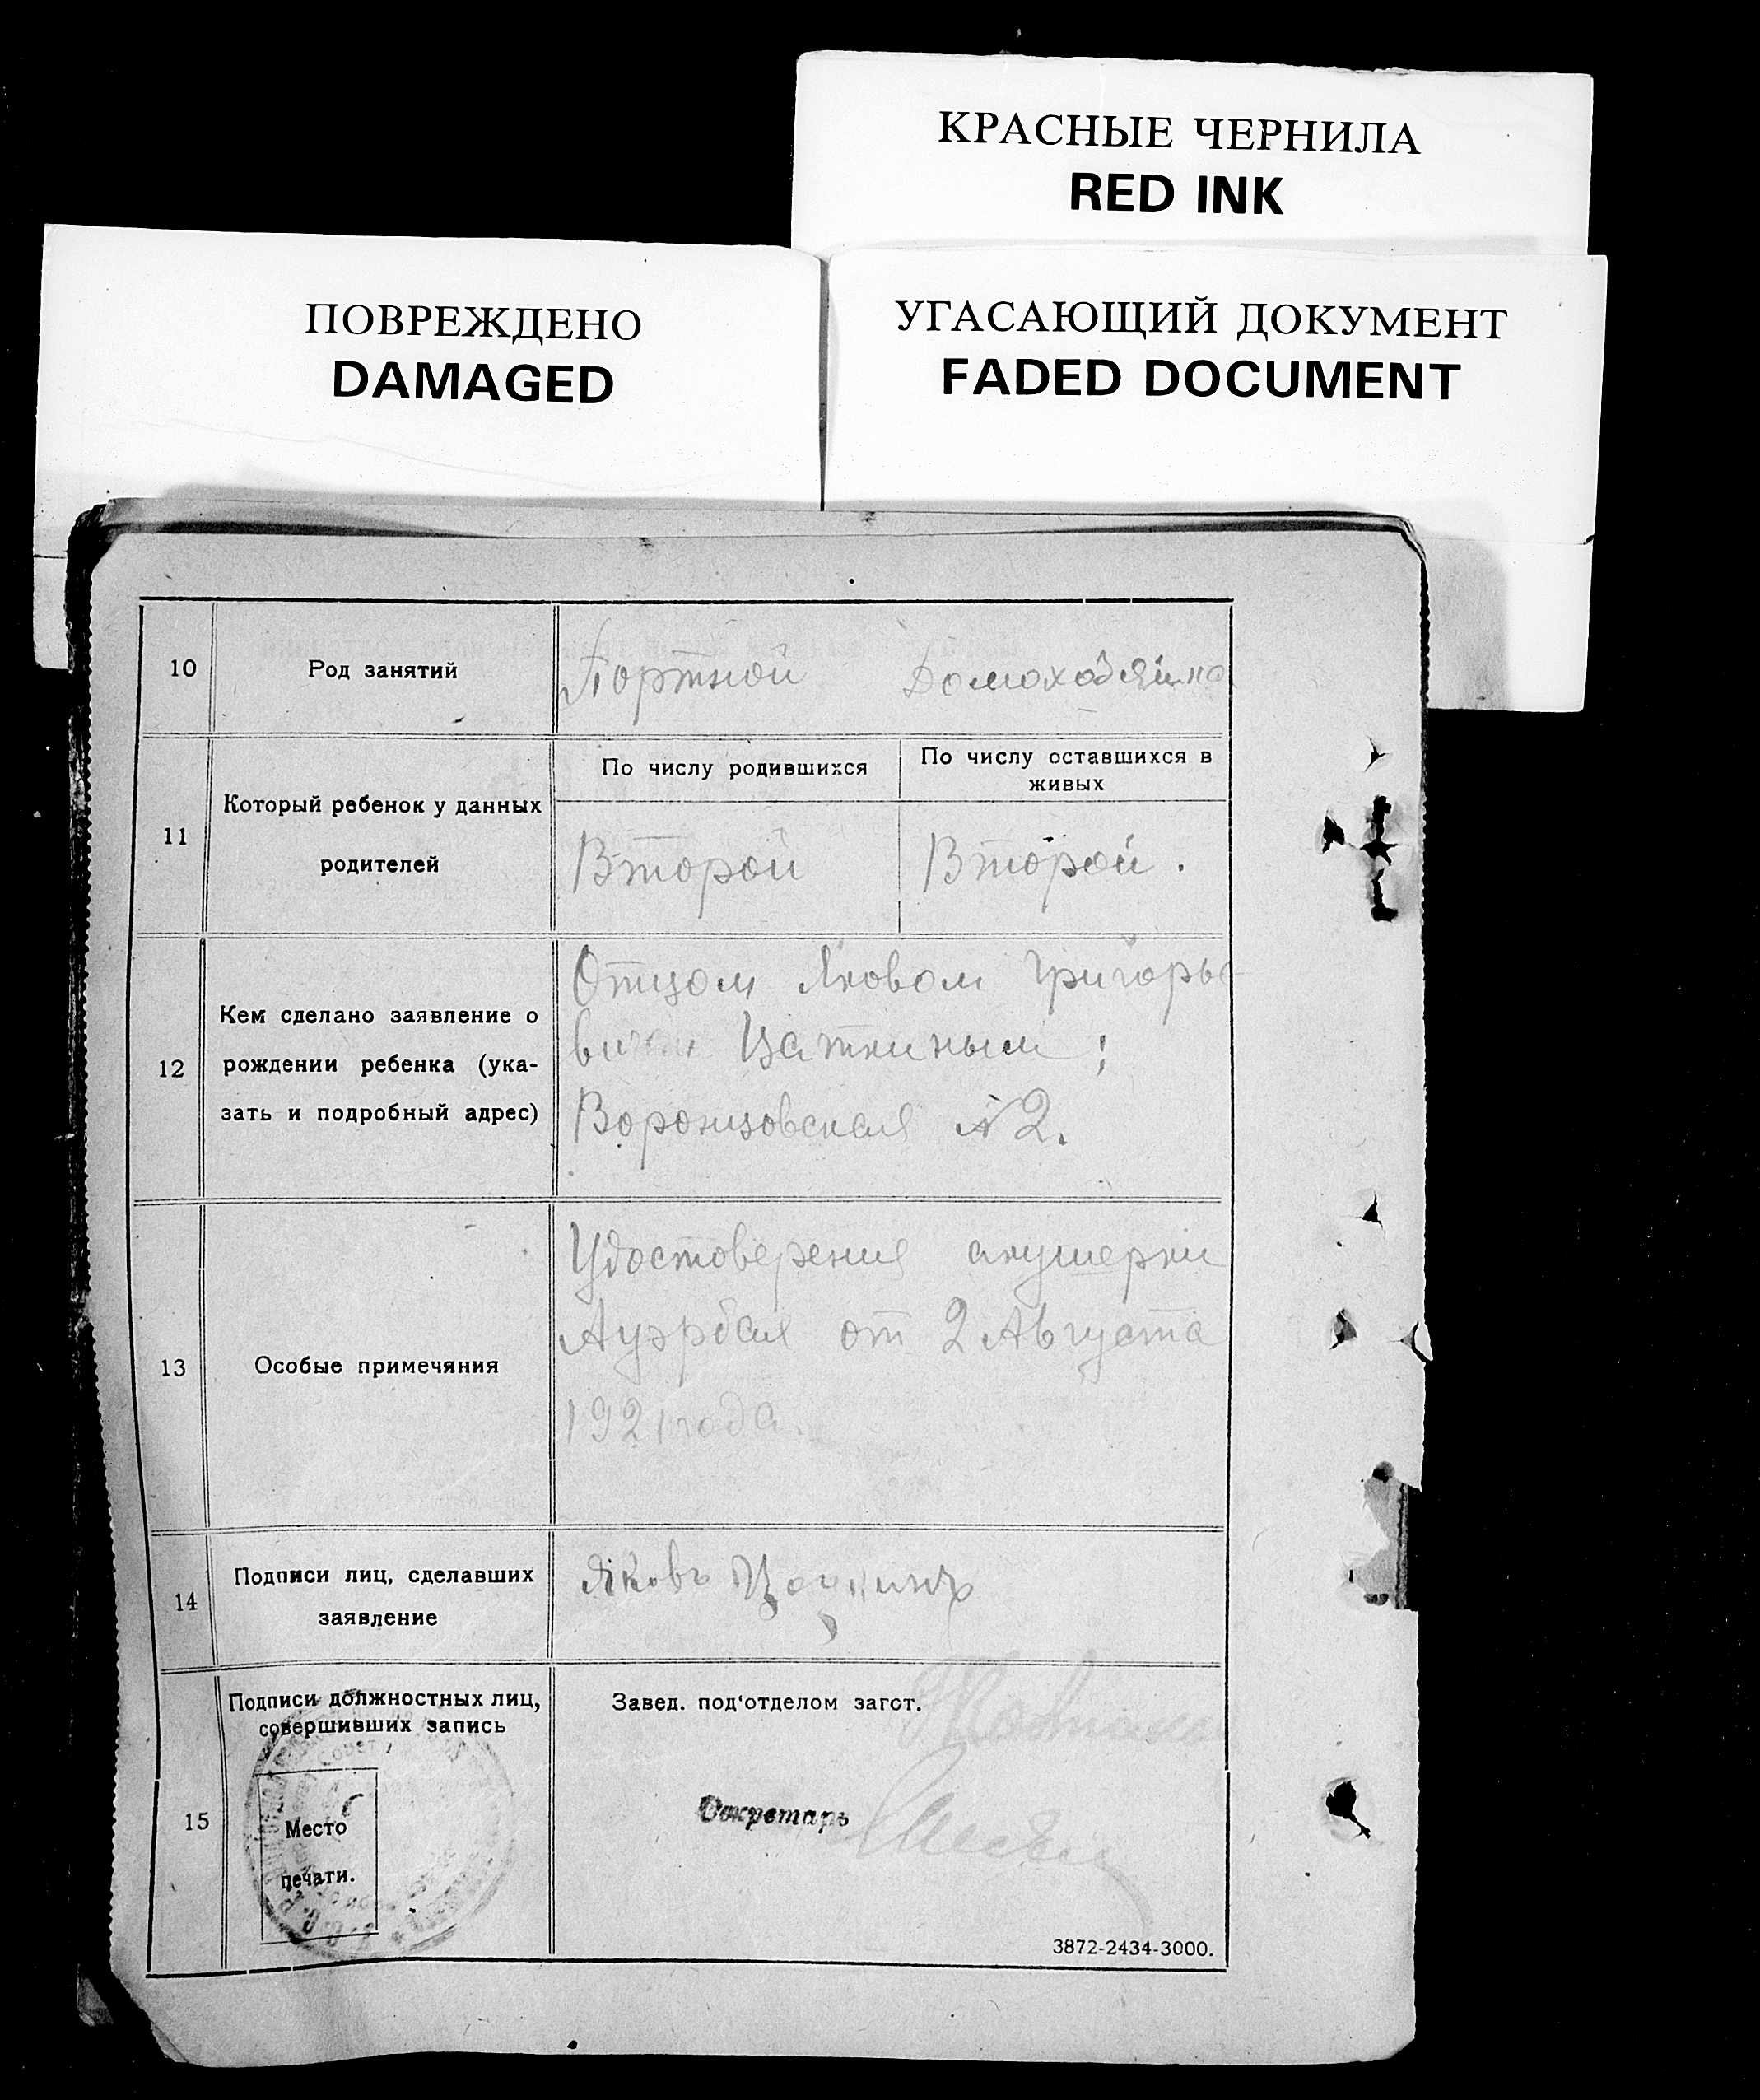 КРАСНЫЕ ЧЕРНИЛА
RED INK
ПОВРЕЖДЕНО
DAMAGED
УГАСАЮЩИЙ ДОКУМЕНТ
FADED DOCUMENT
10 Род занятий Портной Домохозяйка
11 Который ребенок у данных
родителей
По числу родившихся
По числу оставшихся в
живых
Второй Второй.
12 Кем сделано заявление о
рождении ребенка (ука-
зать и подробный адрес)
Отцом Яковом Григорье
вичем Цаткиным;
Воронцовская № 2.
13 Особые примечяния
Удостоверения акушерки
от 2 Августа
1921 года.
14 Подписи лиц, сделавших
заявление
Яковъ
15 Подписи должностных лиц,
совершивших запись
Место
печати.
Завед. под‘отделом загот.
Секретарь
3872-2434-3000.